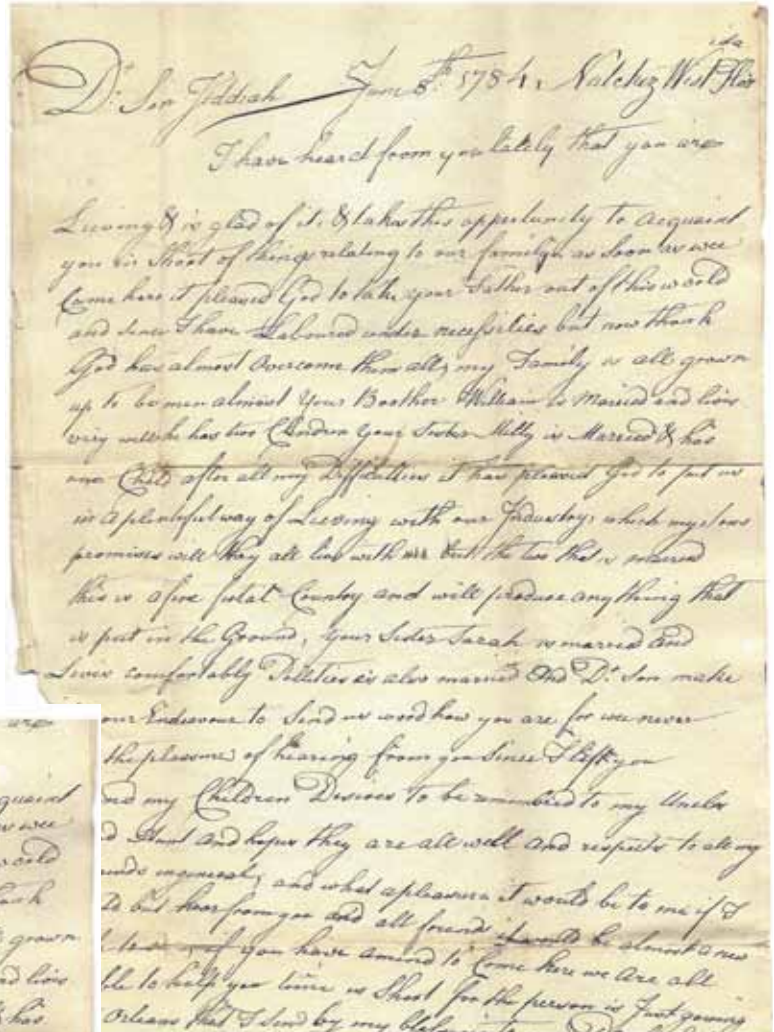 ida
Dr. Son Jeddiah June 8th. 1784, Natchez West Flor
I have heard from you lately that you are
Liveing & is glad of it, & takes this oppertunity to acquaint
you in Short of things relating to our family as Soon as wee
Came here it pleased God to take your Father out of this world
and Since I have Laboured under necessities but now thank
God has almost Overcome them all, my Family is all grown
up to be men almost Your Boother William is Maried and lives
very well he has two Children Your Sister Milly is Married & has
one Child after all my Difficulties it has pleased God to put us
in a plentifulway of Liveing with our Industory, which my Sons
promises will they all live with but the two that is married
this is a fine Country and will produce any thing that
is put in the Ground, your Sister Sarah is married and
Lives comfortably is also married And Dr. Son make
our Endeavour to Send us word how you are for wee never
the pleasure of hearing from you Since I left you
my Children Desires to be remembred to my Uncles
Aunt and hopes they are all well and respects to all my
ingeneral, and what a pleasure it would be to me if I
but hear from you and all friends it would be almost a new
if you have a mind to Come here we are all
to help you time is Short for the person is Just gowing
Orleans that I Send by my
are
quaint
wee
world
hank
grown
nd lives
has